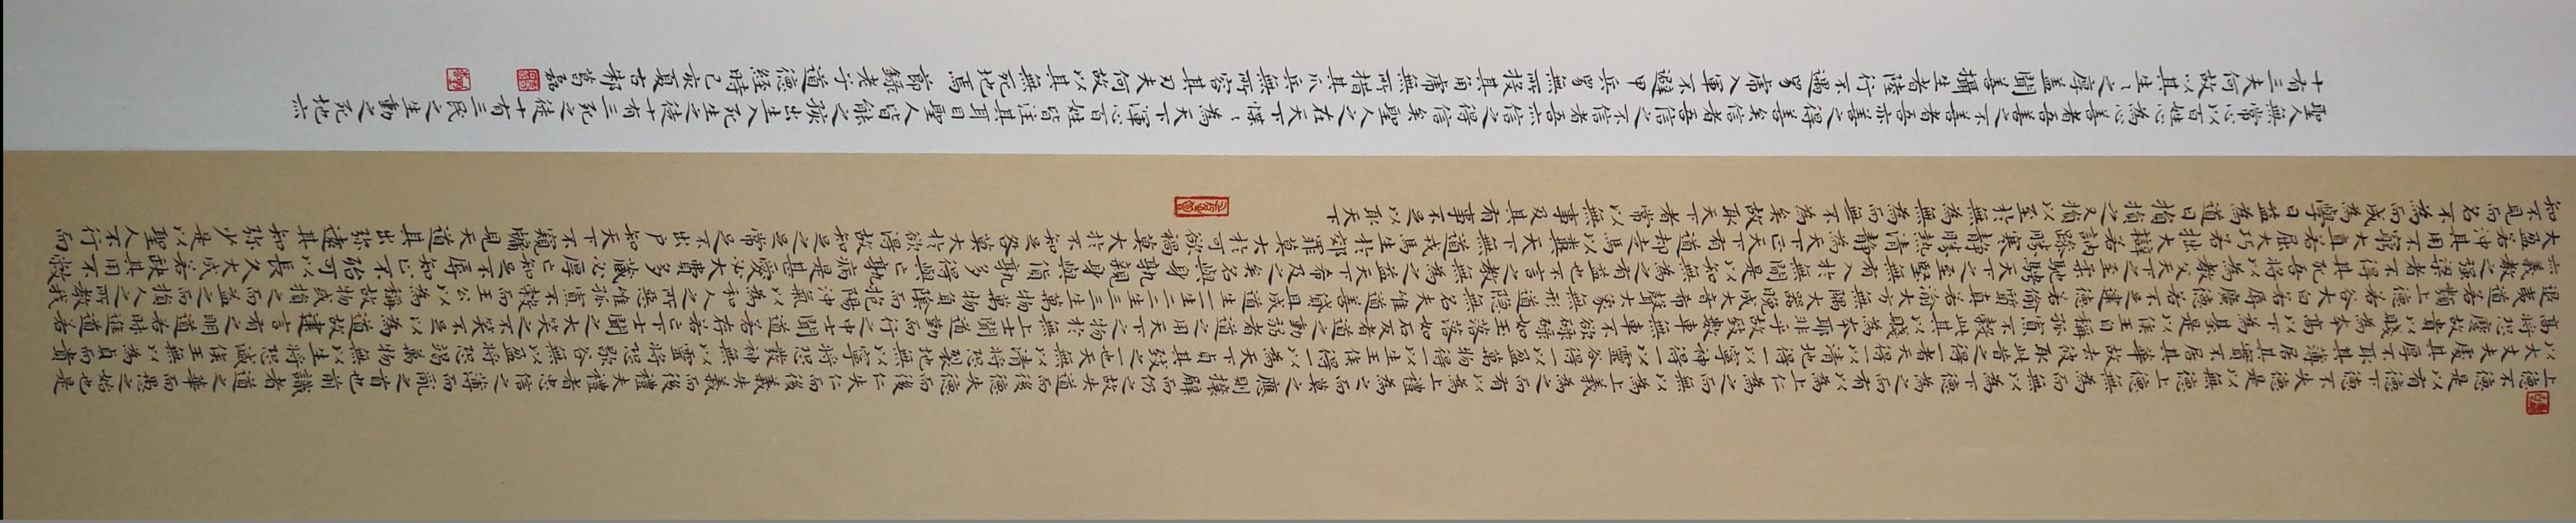 上德不德是以有德下德不失德是以無德上德無為而無以為下德為之而有以為上仁為之而無以為上義為之而有以為上禮為之而莫之應則攘臂而仍之故失道而後德失德而後仁失仁而後義失義而後禮夫禮者忠信之薄而亂之首也前識者道之華而愚之始也是
以大丈夫處其厚不取其薄居其實不居其華故去彼取此昔之得一者天得一以清地得一以寧神得一以靈谷得一以盈萬物得一以生王侯得一以為天下貞其致之一也天無以清將恐裂地無以寧將恐發神無以靈將恐歇谷無以盈將恐竭萬物無以生將恐滅侯王無以為貞而貴
高將恐蹷故貴以賤為本高以下為基是以侯王自稱孤寡不穀此其以賤為本耶非乎故致數車無車不欲碌碌如玉落落如石反者道之動弱者道之用天下之物生於有有生於無上士聞道勤而行之中士聞道若存若亡下士聞道大笑之不笑不足以為道故建言有之明道若昧進道若
退夷道若類上德若谷大白若辱廣德若不足建德若偷質真若渝大方無隅大器晚成大音希聲大象無形道隱無名夫唯道善貸且成道生一一生二二生三三生萬物萬物負陰而抱陽沖氣以為和人之所惡唯孤寡不穀而王公以為稱故物或損之而益之而損人之所教我
亦義教之强梁者不得其死吾將以為教父天下之至柔馳騁天下之至堅無有入於無間是以知無為之有益也不言之教無為之益天下希及之矣名與身孰親身與貨孰多得與亡孰病是甚愛必大費多藏必厚亡知足不辱知止不殆可以長久大成若缺其用不敝
大盈若沖其用不窮大直若屈大巧若拙大辯若訥躁勝寒靜勝熱清靜為天下正天下有道卻走馬以糞天下無道戎馬生於郊罪莫大於可欲禍莫大於不知足咎莫大於欲得故知足之足常足不出戶知天下不窺牖見天道其出弥遠其知弥少是以聖人不行而
知不見而名不為而成為學日益為道日損損之又損以至於無為無為而無不為矣故取天下者常以無事及其有事不足以取天下
聖人無常心以百姓心為心善者吾善之不善者吾亦善之得善矣信者吾信之不信者吾亦信之得信矣聖人之在天下惵惵為天下渾心百姓皆注其耳目聖人皆孩之出生入死生之徒十有三死之徒十有三民之生動之死地亦
十有三夫何故以其生生之厚蓋聞善攝生者陸行不遇兕虎入軍不避甲兵兕無所投其角虎無所措其爪兵無所容其刃夫何故以其無死地焉 節錄老子道德經時己亥夏古邾葛磊